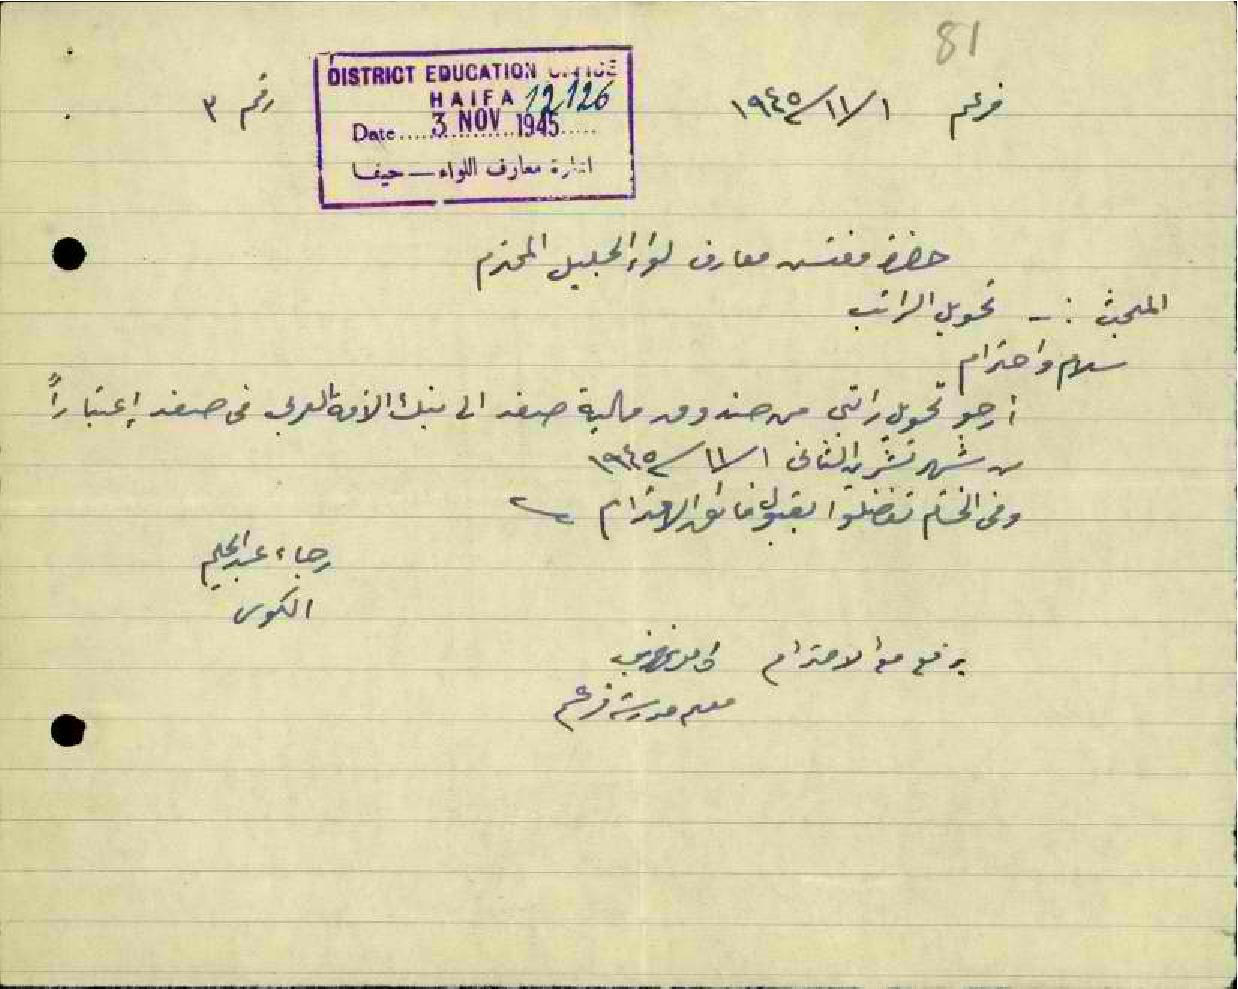 81
فرعم ١/١١/١٩٤٥
رقم ٣
DISTRICT EDUCATION OFFICE
HAIFA 12126
Date 3 NOV 1945
ادارة معارف اللواء — حيفا
حضرة مفتش معارف لواء الجليل المحترم
المبحث :- تحويل الراتب
سلام واحترام
أرجو تحويل راتبي من صندوق مالية صفد الى بنك الأمة العربي في صفد إعتباراً
من شهر تشرين الثاني ١/١١/١٩٤٥
وفي الختام تفضلوا بقبول فائق الاحترام
رجاء عبد الحليم
الكوس
يرفع مع الاحترام
معلم مدرسة فرعم